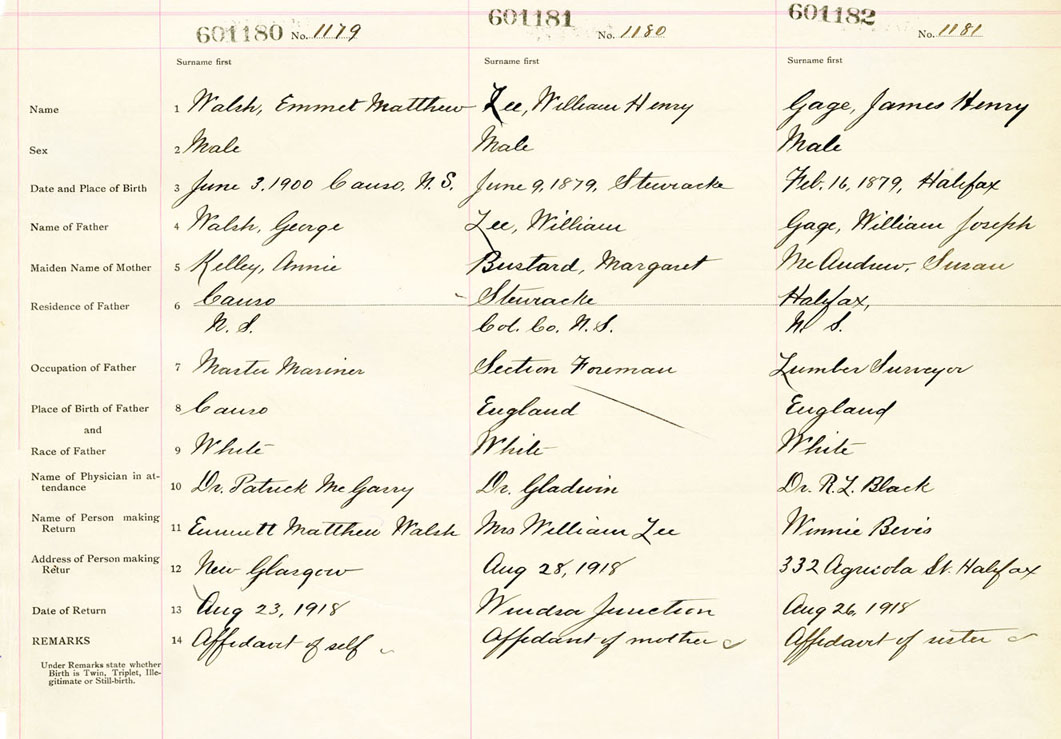 601180 No. 1179 601181 No. 1180 601182 No. 1181
Surname first Surname first Surname first
Name 1 Walsh, Emmet Matthew Lee, William Henry Gage, James Henry
Sex 2 Male Male Male
Date and Place of Birth 3 June 3, 1900 Canso, N.S. June 9, 1879, Stewiacke Feb. 16, 1879, Halifax
Name of Father 4 Walsh, George Lee, William Gage, William Joseph
Maiden Name of Mother 5 Kelley, Annie Bustard, Margaret McAndrew, Susan
Residence of Father 6 Canso Stewiacke Halifax,
N.S. Col. Co. N.S. N.S.
Occupation of Father 7 Master Mariner Section Foreman Lumber Surveyor
Place of Birth of Father 8 Canso England England
and
Race of Father 9 White White White
Name of Physician in at-
tendance 10 Dr. Patrick McGarry Dr. Gladwin Dr. R.L. Black
Name of Person making
Return 11 Emmett Matthew Walsh Mrs William Lee Winnie Bevis
Address of Person making
Retur 12 New Glasgow Aug 28, 1918 332 Agricola St. Halifax
Date of Return 13 Aug 23, 1918 Windsor Junction Aug 26, 1918
REMARKS 14 Affidavit of self Affidavit of mother Affidavit of sister
Under Remarks state whether
Birth is Twin, Triplet, Ille-
gitimate or Still-birth.